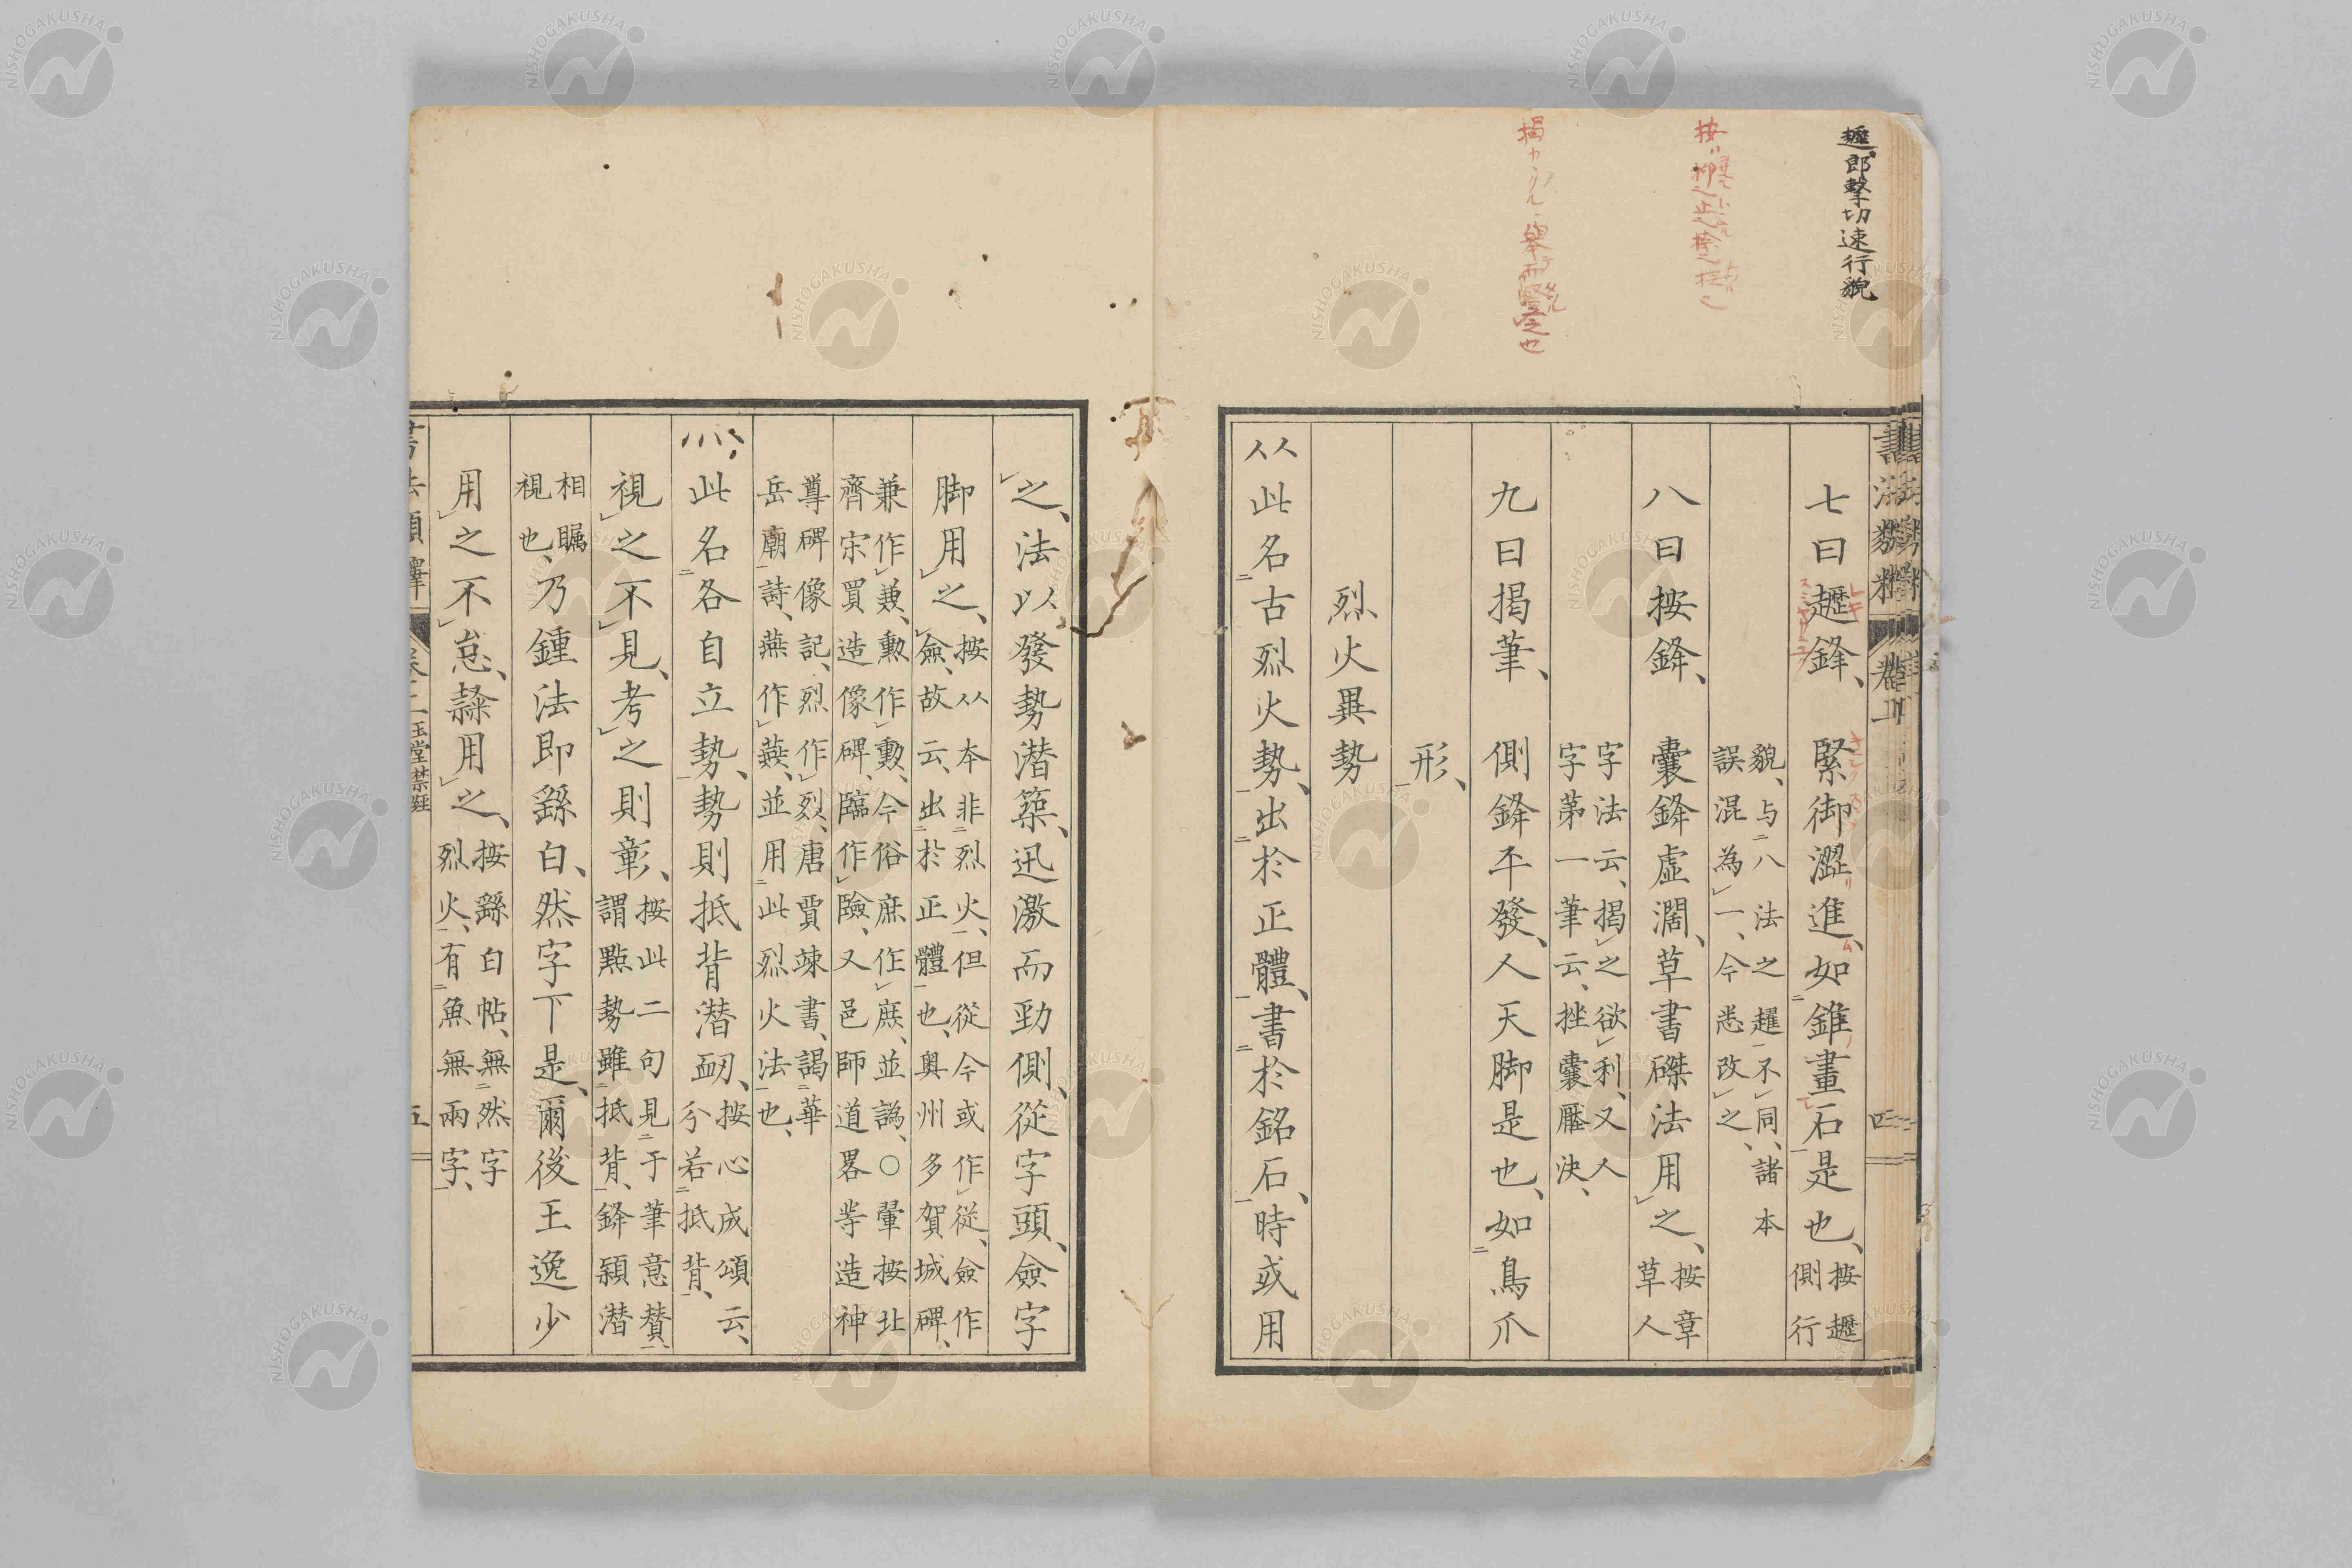 趯郎擊切速行貌
七曰趯鋒、緊御澀進、如錐畫石是也、按趯側行
貌、与八法之趯不同、諸本誤混為一、今悉改之、
八曰按鋒、囊鋒虛濶、草書磔法用之、按章草人
字法云、揭之欲利、又人字第一筆云、挫囊壓決、
九曰揭筆、側鋒平發、人天脚是也、如鳥爪
形、
烈火異勢
此名古烈火勢、出於正體、書於銘石、時或用
之、法以發勢潜築、迅激而勁側、従字頭、僉字
脚用之、按从本非烈火、但従今或作従、僉作僉、故云、出於正體也、奥州多賀城碑、
兼作兼、勳作勳、今俗庶作庶、並譌、○鞏按北齊宋買造像碑、臨作臨、又邑師道畧䓁造神
尊碑像記、烈作烈、唐賈竦書、謁華岳廟詩、燕作燕、並用此烈火法也、
此名各自立勢、勢則抵背潜衂、按心成頌云、分若抵背、
視之不見、考之則彰、按此二句見于筆意贊謂點勢雖抵背、鋒穎潜
相矚視也、乃鍾法即繇白、然字下是、爾後王逸少
用之不怠、隸用之、按繇白帖、無然字烈火、有魚無兩字、
五
NISHOGAKUSHA